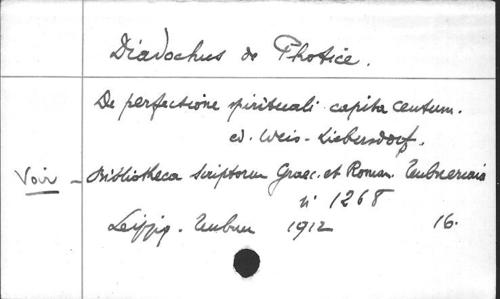 Diadochus de Photice.
De perfectione spirituali capita centum.
ed. Weis-Liebersdorf.
Voir - Bibliotheca Scriptorum Graec. et Roman. Teubneriana
n° 1268
Leipzig. Teubner 1912 16.